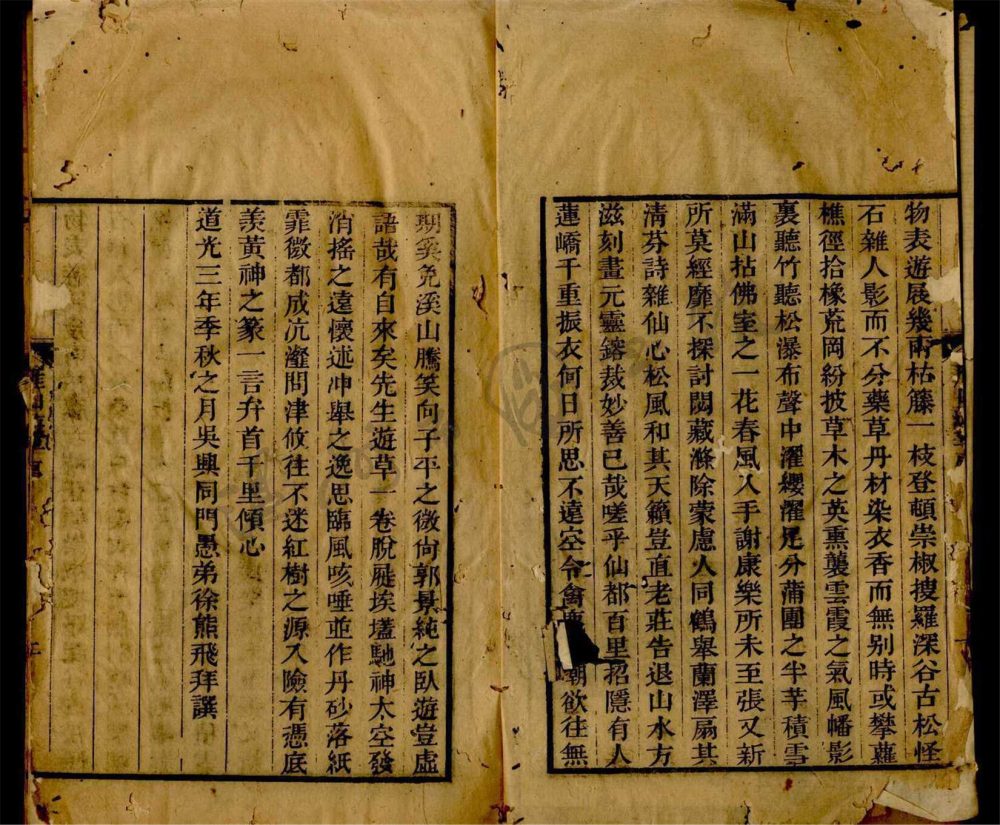 物表遊屐幾兩枯籐一枝登頓崇椒搜羅深谷古松怪
石雜人影而不分藥草丹材染衣香而無别時或攀蘿
樵徑拾橡荒岡紛披草木之英熏襲雲霞之氣風幡影
裏聽竹聽松瀑布聲中濯纓濯足分蒲團之半芋積雪
滿山拈佛室之一花春風入手謝康樂所未至張又新
所莫經靡不探討閟藏滌除蒙慮人同鶴舉蘭澤扇其
淸芬詩雜仙心松風和其天籟豈直老莊告退山水方
滋刻畫元靈鎔裁妙善已哉嗟乎仙都百里招隱有人
蓮嶠千重振衣何日所思不遠空令禽 嘲欲往無
期奚免溪山騰笑向子平之微尙郭景純之臥遊豈虛
語哉有自來矣先生遊草一卷脫屣埃壒馳神太空發
消搖之遠懷述冲舉之逸思臨風咳唾並作丹砂落紙
霏微都成沆瀣問津攸往不迷紅樹之源入險有憑底
羨黃神之篆一言弁首千里傾心
道光三年季秋之月吳興同門愚弟徐熊飛拜譔